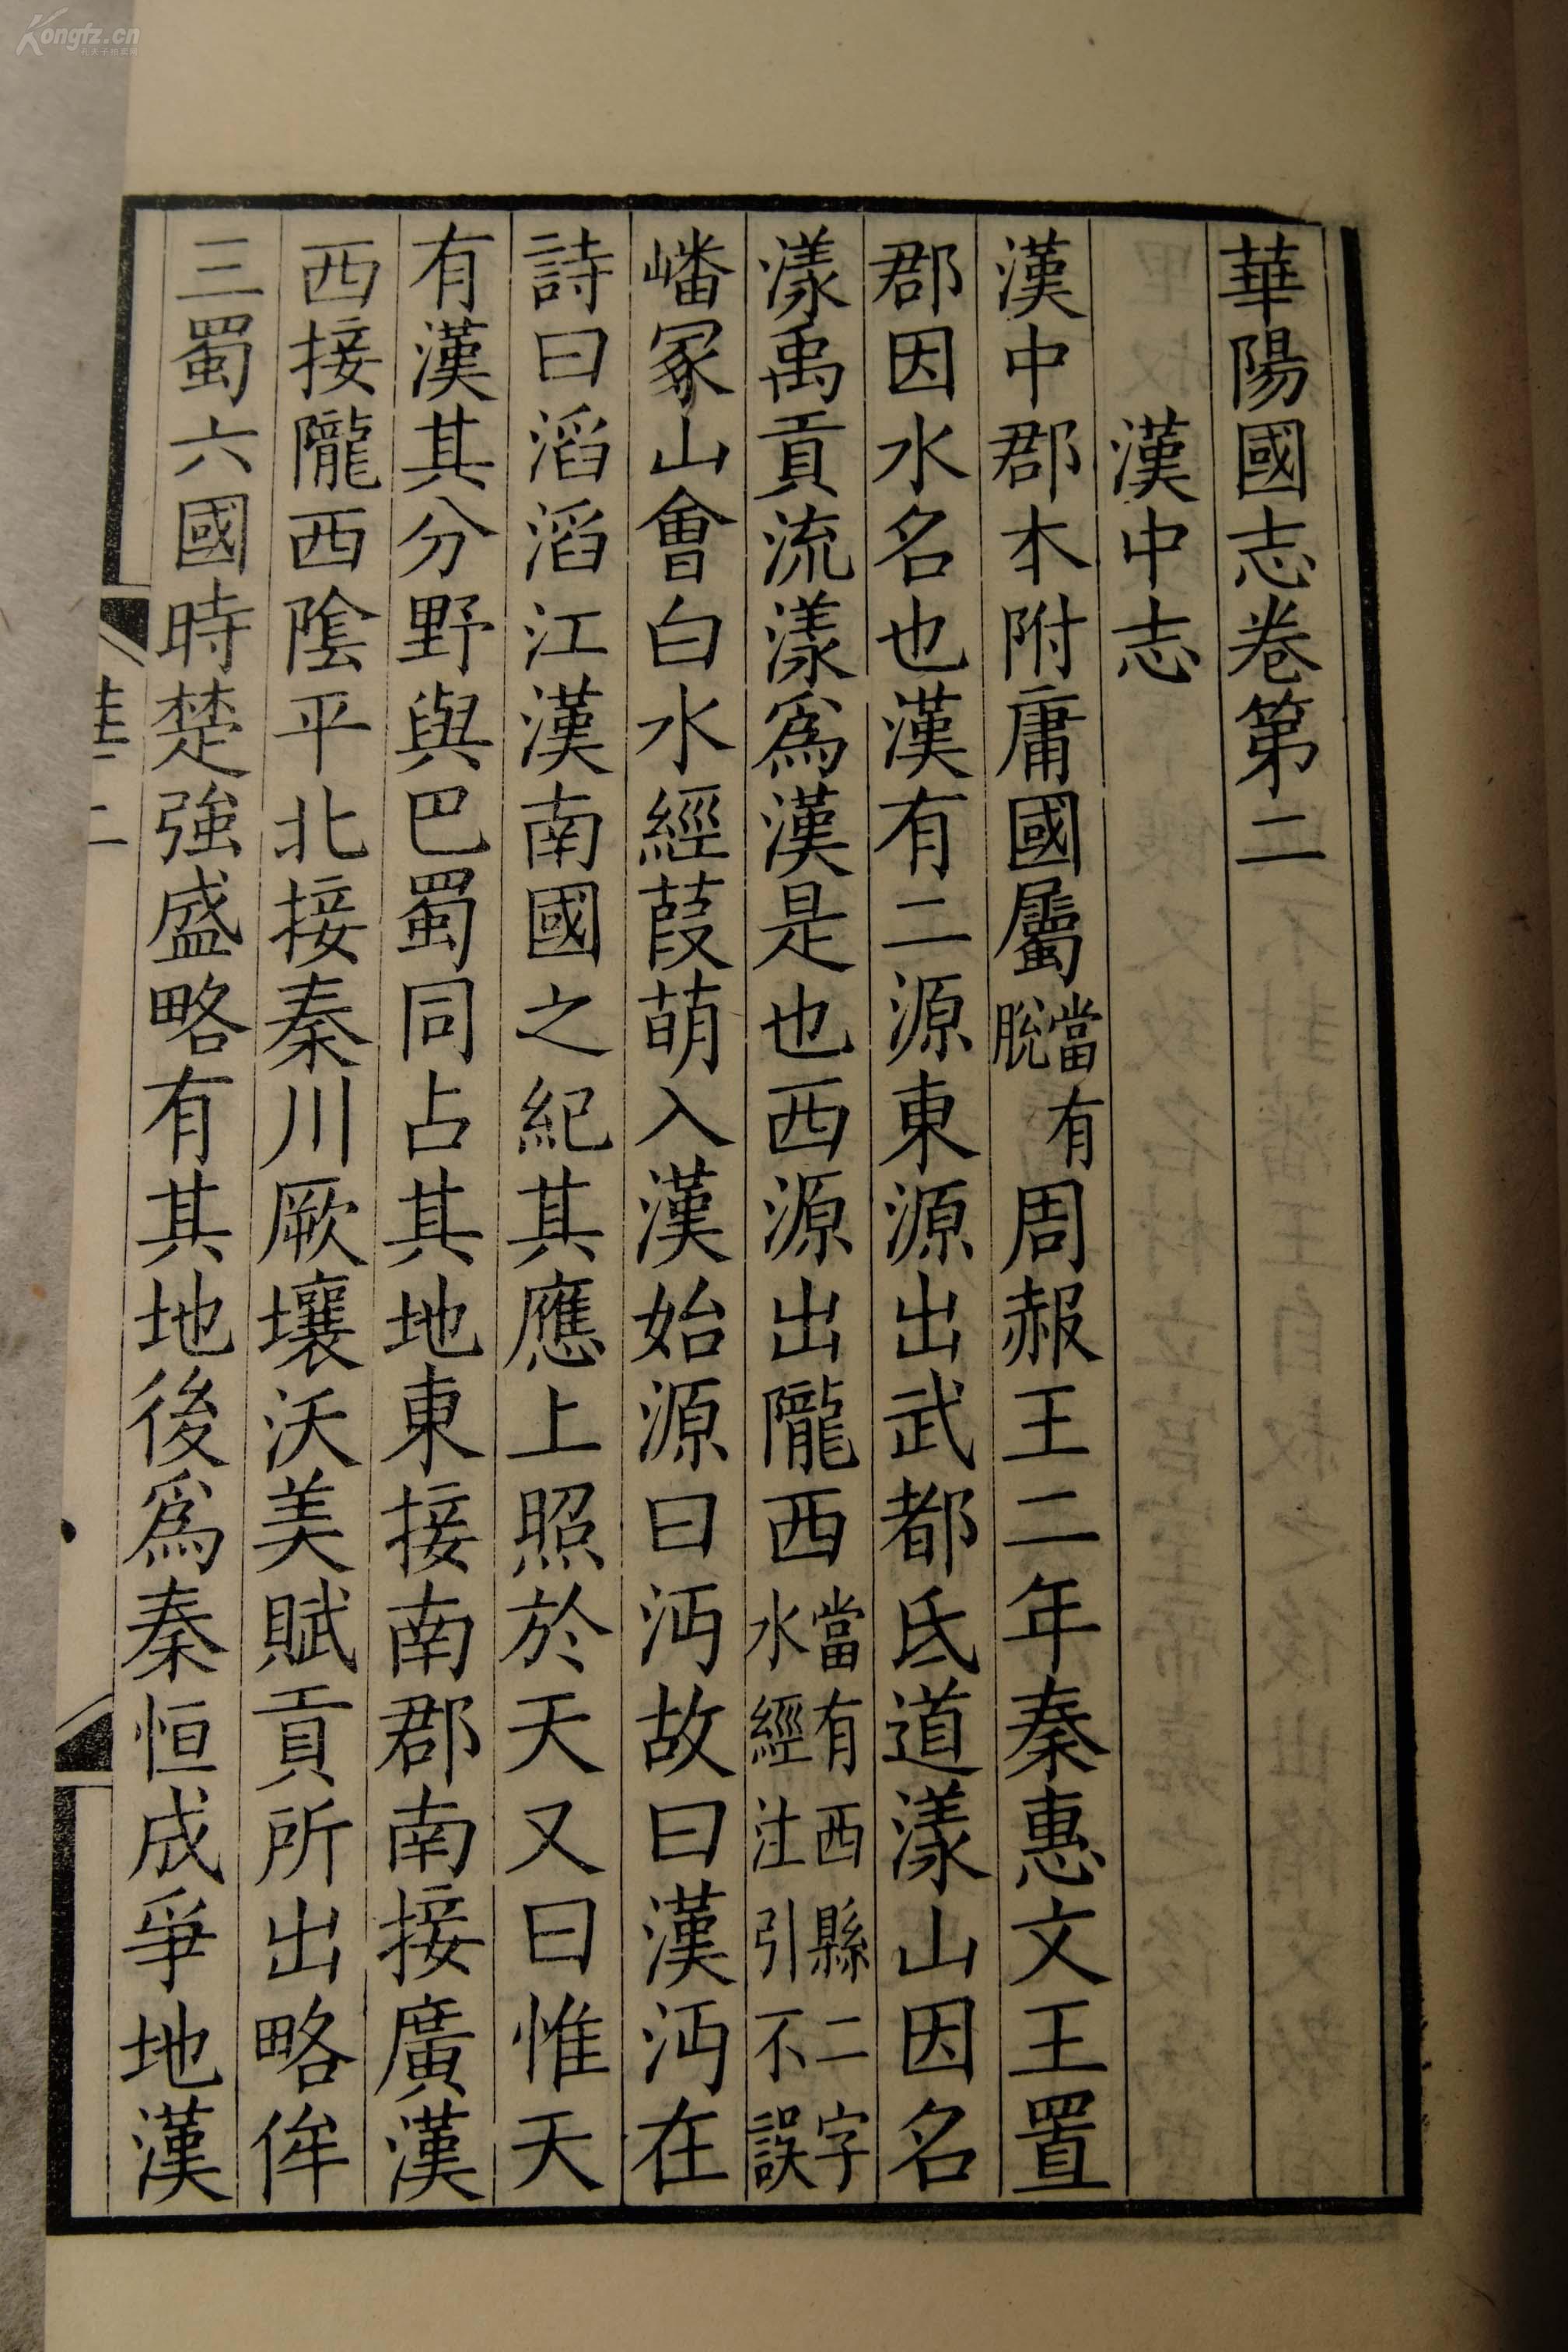 華陽國志卷第二
漢中志
漢中郡本附庸國屬當有脫周赧王二年秦惠文王置
郡因水名也漢有二源東源出武都氐道漾山因名
漾禹貢流漾爲漢是也西源出隴西當有西縣二字水經注引不誤
嶓冢山會白水經葭萌入漢始源曰沔故曰漢沔在
詩曰滔滔江漢南國之紀其應上照於天又曰惟天
有漢其分野與巴蜀同占其地東接南郡南接廣漢
西接隴西陰平北接秦川厥壤沃美賦貢所出略侔
三蜀六國時楚強盛略有其地後爲秦恒成爭地漢
二
Kongfz.cn